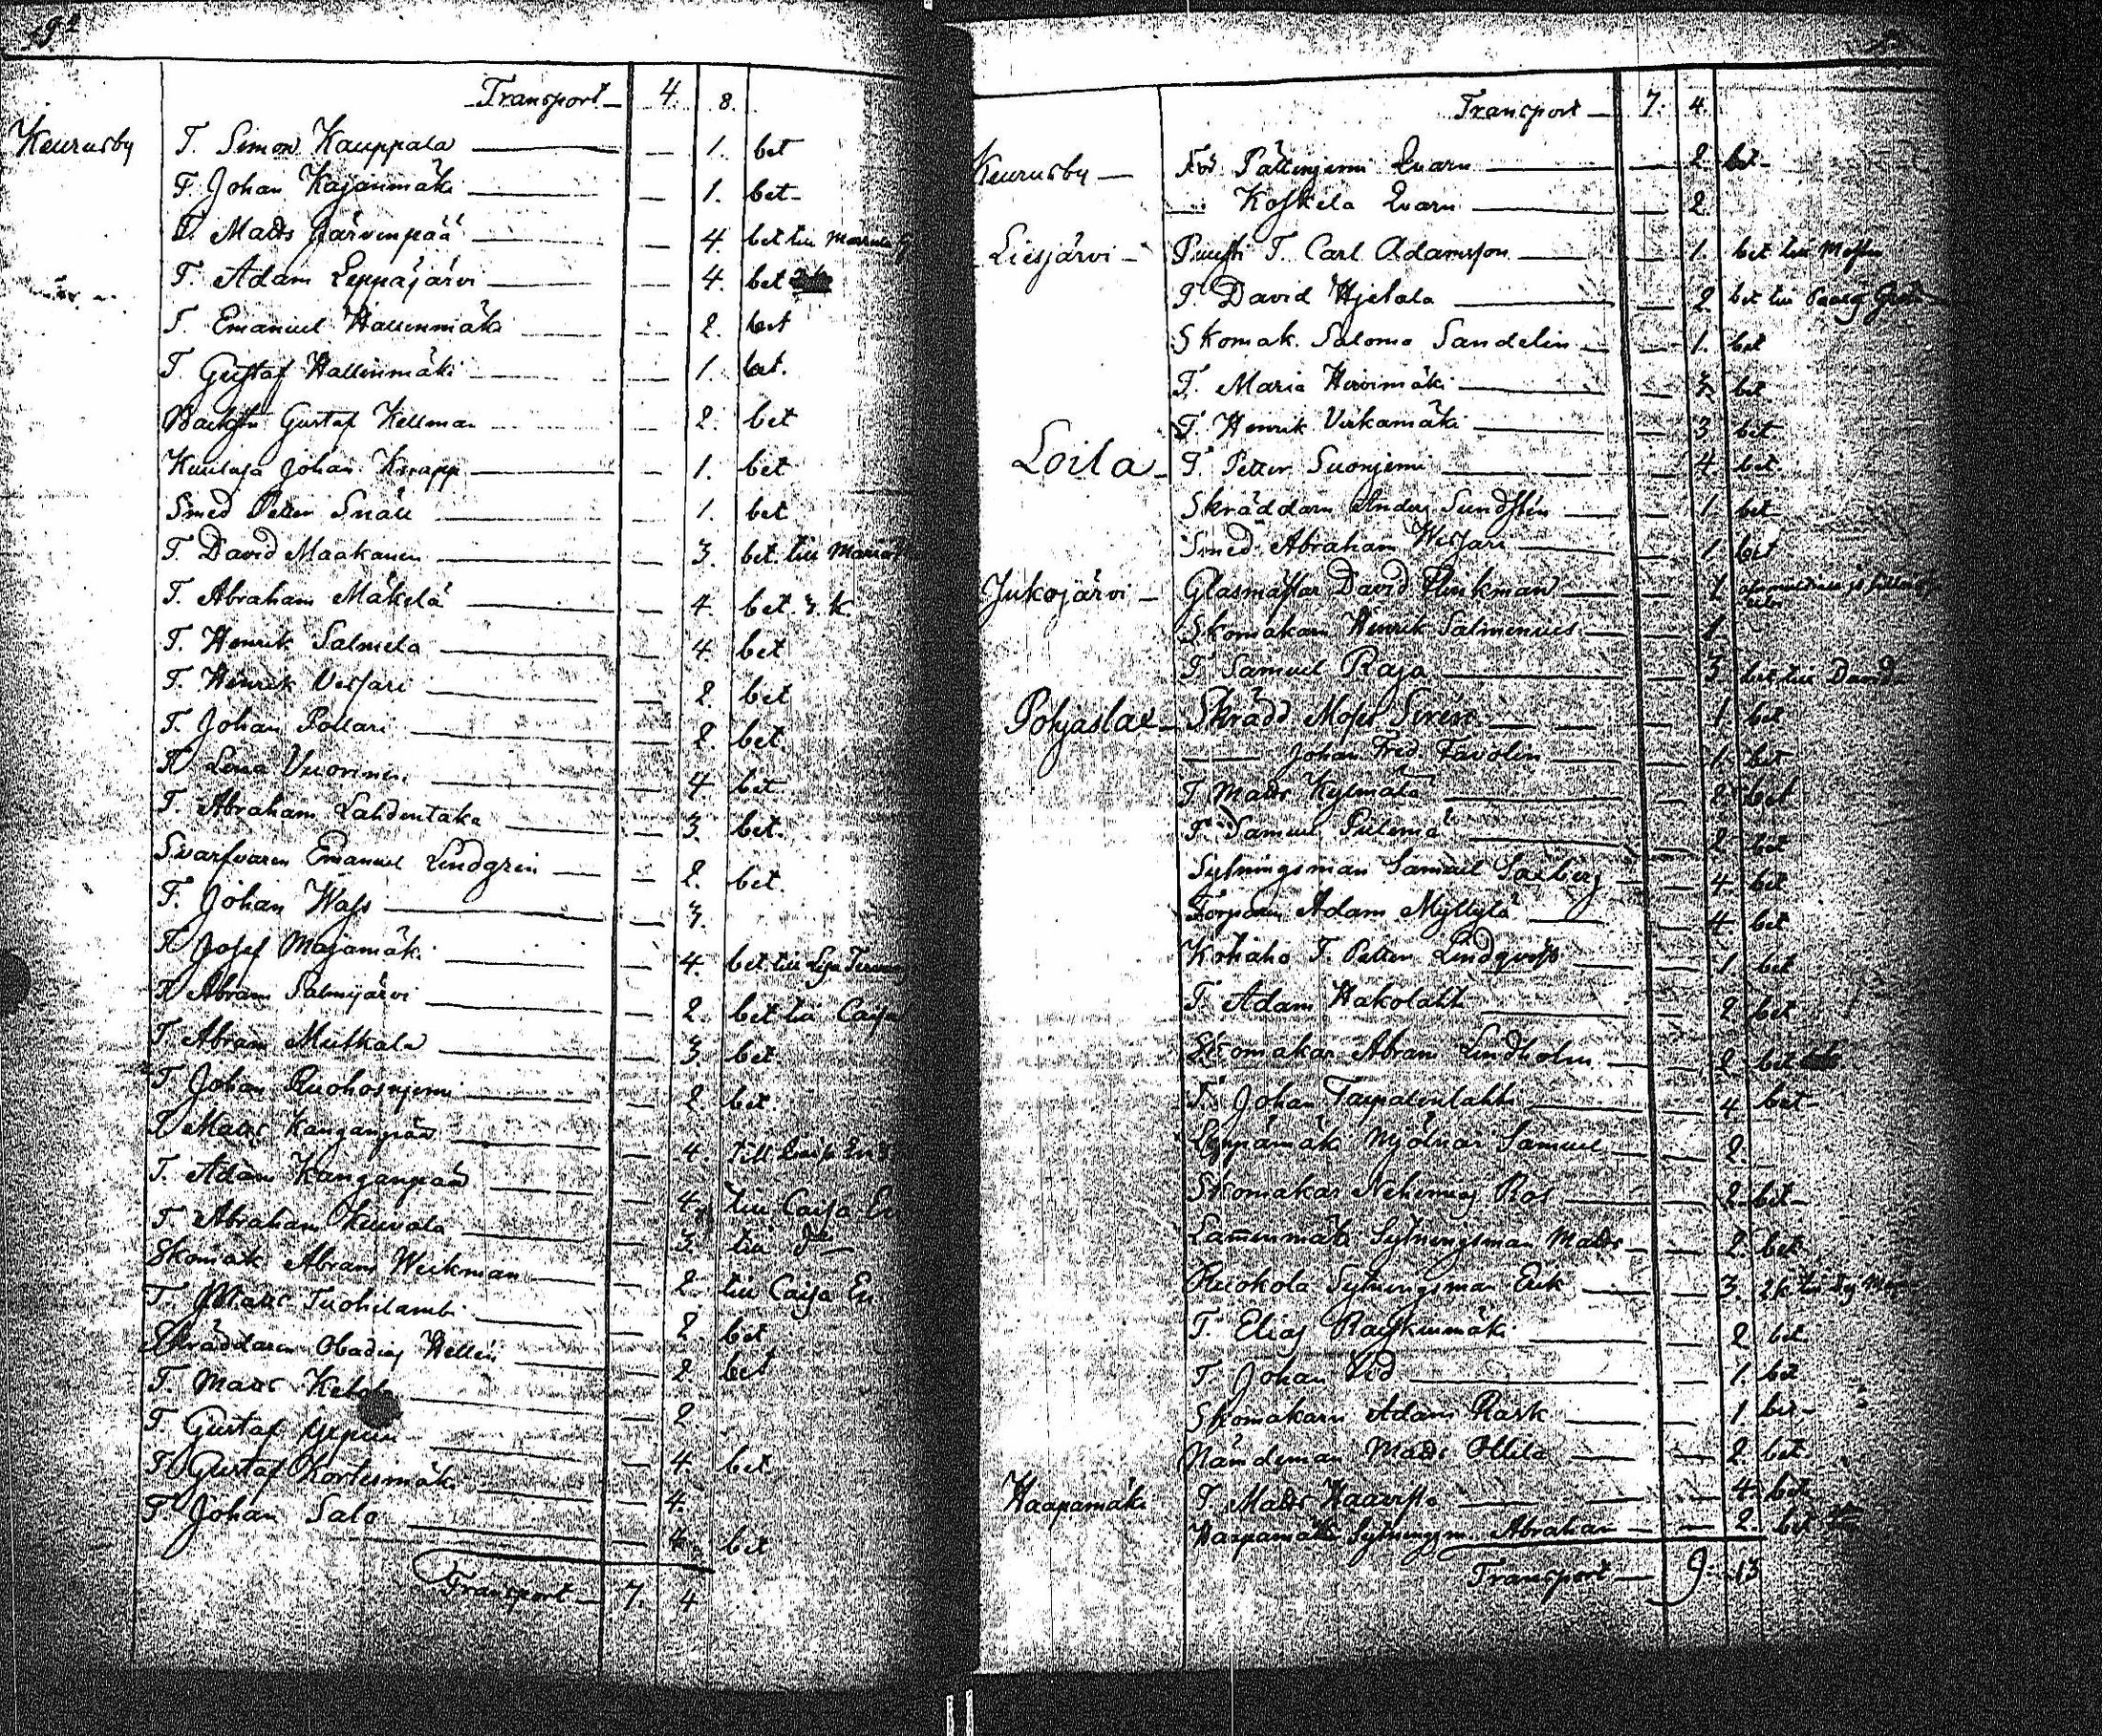 Transport 4. 8.
Keurusby T. Simon Kauppala 1. bet
T. Johan Kajanmäki 1. bet
T. Matts Järvenpää 4. bet till
T. Adam Leppäjärvi 4. bet
T. Emanuel Hallinmäki 2. bet
T. Gustaf Hallinmäki 1. bet.
Gustaf Hellman 2. bet
Johan Knapp 1. bet
Smed Petter Snäll 1. bet
T. David Maakanen 3. bet. till
T. Abraham Mäkelä 4. bet. 3. k.
T. Henrik Salmela 4. bet
T. Henrik Vesjari 2. bet
T. Johan Pollari 2. bet.
T. Lena Vuorinen 4. bet
T. Abraham Lahdentaka 3. bet.
Svarfvaren Emanuel Lindgren 2. bet.
T. Johan Wass 3.
T. Josef Majamäki 4. bet till
T. Abram Salmijärvi 2. bet till Caisa
T. Abram Mutkala 3. bet.
T. Johan Ruohosniemi 2. bet.
T. Matts Kanganpää 4. till
T. Adam Kanganpää 4. till Caisa En
T. Abraham Kuivala 3. till do
Skomak. Abram Weikman 2. till Caisa En
T. Matts Tuohilambi 2. bet
Skräddaren Obadias Hellen 2. bet
T. Matts Ketola 2
T. Gustaf 4. bet
T. Gustaf Kortesmäki 4.
T. Johan Salo 4. bet
Transport 7. 4
Transport 7. 4.
Keurusby För Pättiniemi Qvarn 2. bet
Koskela Qvarn 2.
Liesjärvi T. Carl Adamsson 1. bet till
T. David Hjetala 2. bet till
Skomak. Salomo Sandelin 1. bet
T. Maria Hirvimäki 3. bet
T. Henrik Virkamäki 3 bet
Loila T. Petter Suoniemi 4. bet
Skräddarn Anders Sundsten 1 bet
Smed Abraham Wesjari 1 bet
Jukojärvi Glasmästar David Plinkman 1
Skomakarn Henrik Salmenius 1
T. Samuel Raja 3. bet till David
Pohjaslax Skrädd. Moses Siren 1. bet
Johan Fred. Favolin 1. bet
T. Matts Kylmälä 2. bet
T. Samuel 2. bet
Sytningsman Samuel 4 bet
Torparen Adam Myllylä 4. bet
Kohaho T. Petter Lindqvist 1 bet
T. Adam Hakolahti 2 bet
Skomakar Abram Lindholm 2. bet
T. Johan Taipalenlahti 4 bet
Leppämäki Mjölnar Samuel 2.
Skomakar Nehemias Ros 2. bet
Lamminmäki Sytningsman Matts 2. bet
Ruokola Sytningsman Erik 3. 2 k till
T. Elias Raiskinmäki 2. bet.
T. Johan 1. bet
Skomakarn Adam Rask 1 bet
Nämdeman Matts Ollila 2. bet
Haapamäki T. Matts Haavisto 4. bet
Haapamäki Sytningsm. Abraham 2. bet
Transport 9. 13